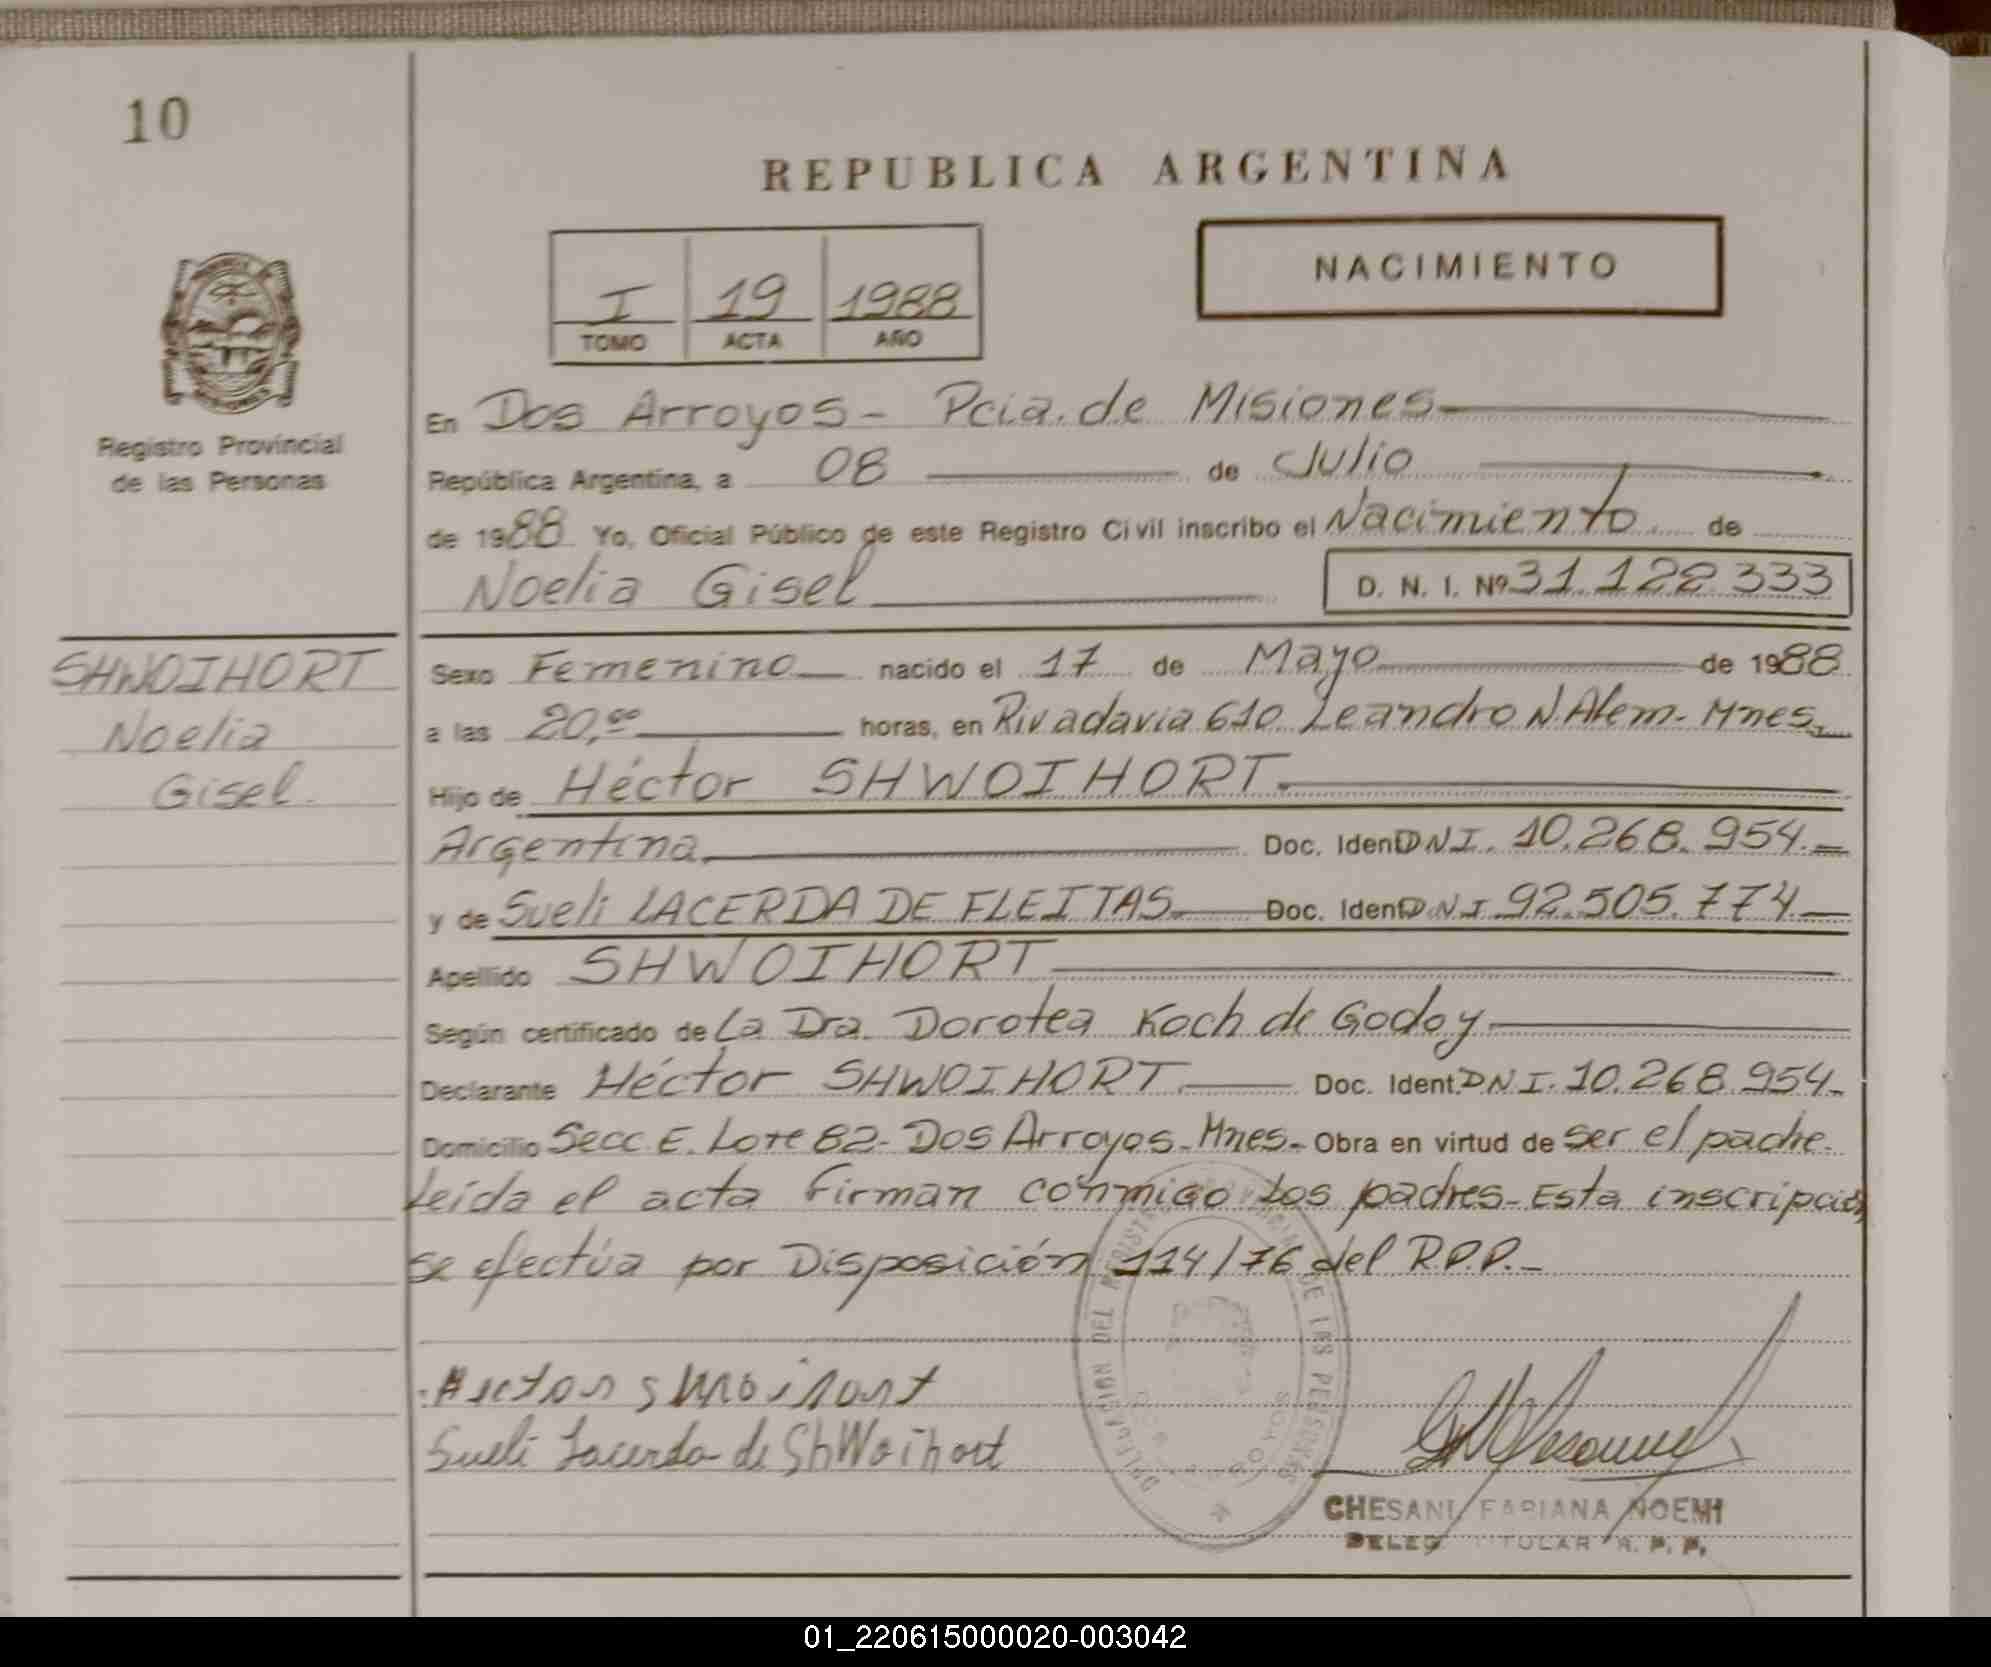 10
REPUBLICA ARGENTINA
NACIMIENTO
I 19 1988
TOMO ACTA AÑO
Registro Provincial
de las Personas
En Dos Arroyos - Pcia. de Misiones
República Argentina, a 08 de Julio
de 1988 Yo, Oficial Público de este Registro Civil inscribo el Nacimiento de
Noelia Gisel D. N. I. Nº 31.122.333
SHWOIHORT
Noelia
Gisel.
Sexo Femenino nacido el 17 de Mayo de 1988
a las 20,00 horas, en Rivadavia 610 Leandro N. Alem - Mnes.
Hijo de Héctor SHWOIHORT.
Argentina. Doc. Ident DNI. 10.268.954.-
y de Sueli LACERDA DE FLEITAS Doc. Ident DNI 92.505.774
Apellido SHWOIHORT
Según certificado de La Dra. Dorotea Koch de Godoy
Declarante Héctor SHWOIHORT. Doc. Ident. DNI. 10.268.954-
Domicilio Secc. E. Lote 82 - Dos Arroyos - Mnes - Obra en virtud de ser el padre.
Leída el acta firman conmigo los padres - Esta inscripción
se efectúa por Disposición 114/76 del R.P.P.-
DELEGACION DEL REGISTRO DE LAS PERSONAS
Sueli Lacerda de ShWoihort
CHESANI FABIANA NOEMI
DELEG. TITULAR R. P. P.
01_220615000020-003042